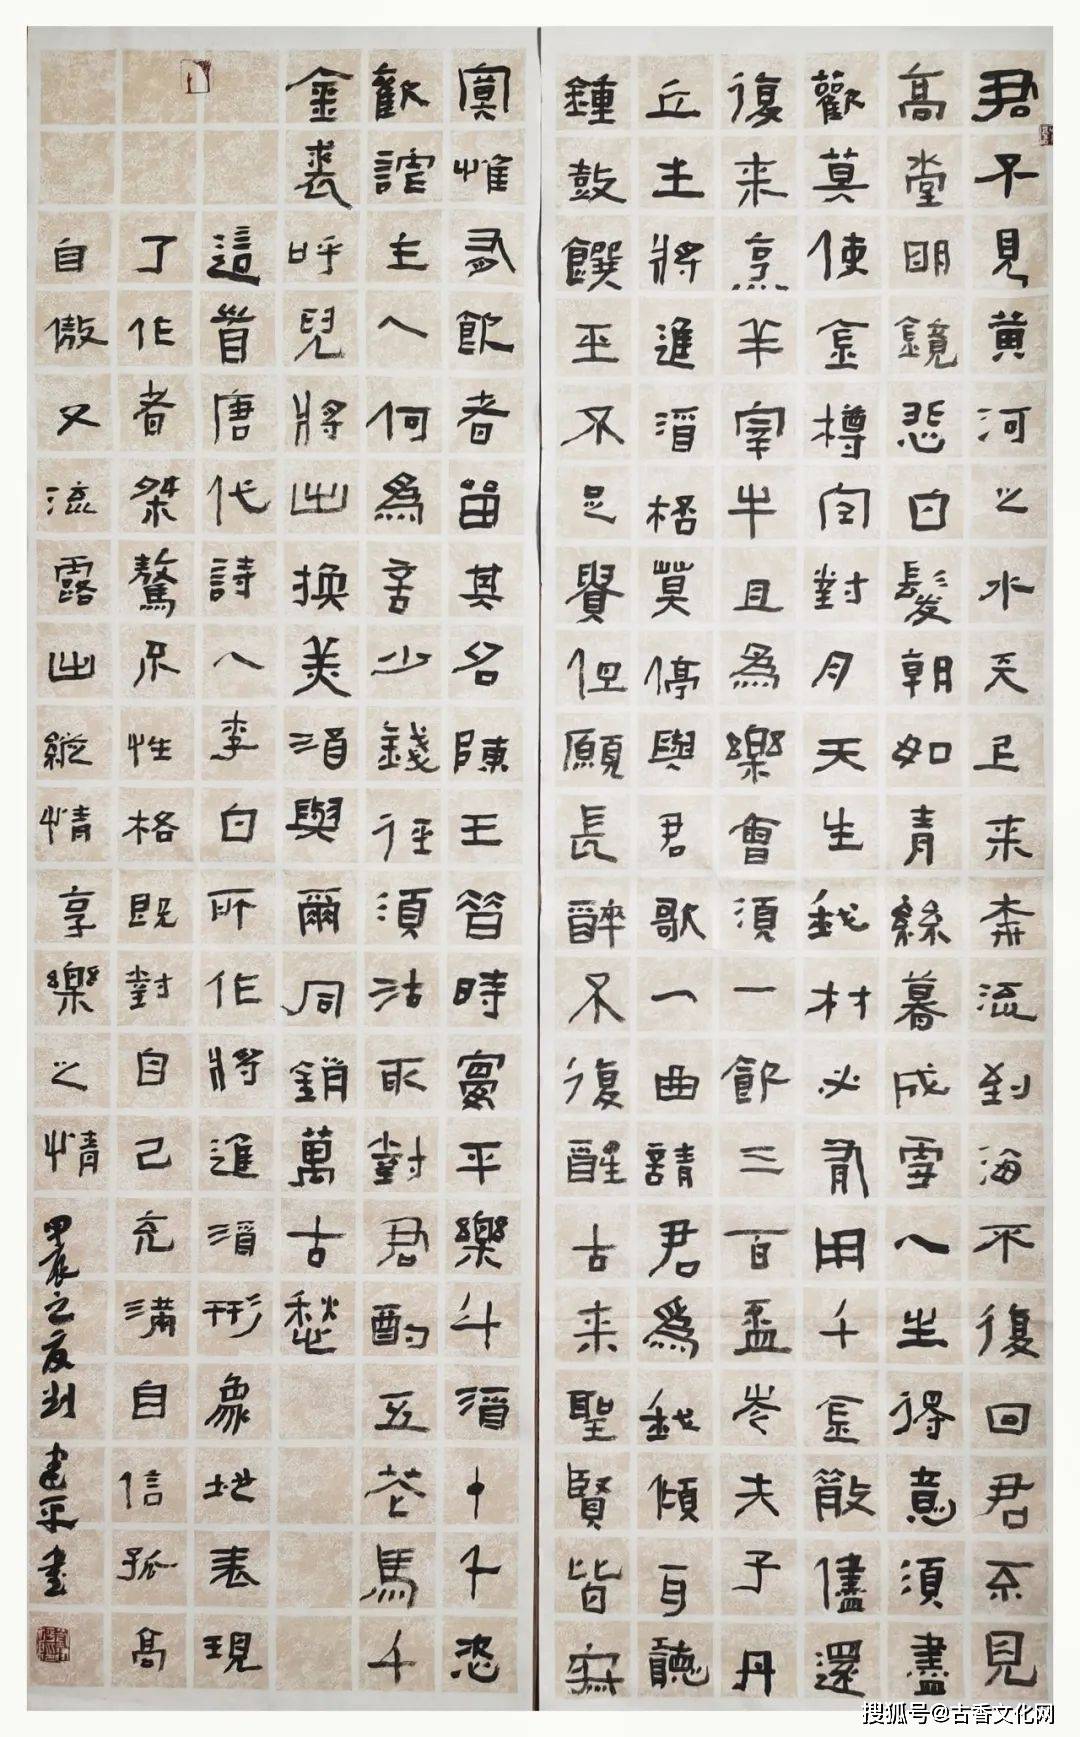 君不見黄河之水天上来奔流到海不復回君不見
高堂明鏡悲白髮朝如青絲暮成雪人生得意須盡
歡莫使金樽空對月天生我材必有用千金散儘還
復来烹羊宰牛且為樂會須一飲三百盃岑夫子丹
丘生將進酒桮莫停與君歌一曲請君為我傾耳聽
鍾鼓饌玉不足貴但願長醉不復醒古来聖賢皆寂
寞惟有飲者留其名陳王昔時宴平樂斗酒十千恣
歡謔主人何為言少錢徑須沽取對君酌五花馬千
金裘呼兒將出換美酒與爾同銷萬古愁
這首唐代詩人李白所作將進酒形象地表現
了作者桀驁不性格既對自己充滿自信孤高
自傲又流露出縱情享樂之情
甲辰之夏刘建平書
搜狐号@古香文化网